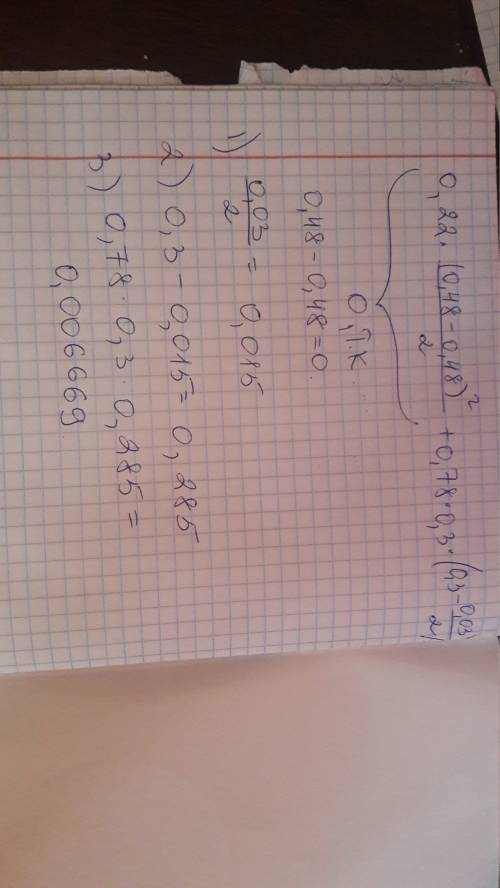 0,22·(0,48-0,48)²/2+0,78·0,3·(0,3-0,03/2)
0, т.к
0,48-0,48=0.
1) 0,03/2=0,015
2) 0,3-0,015=0,285
3) 0,78·0,3·0,285=
0,006669